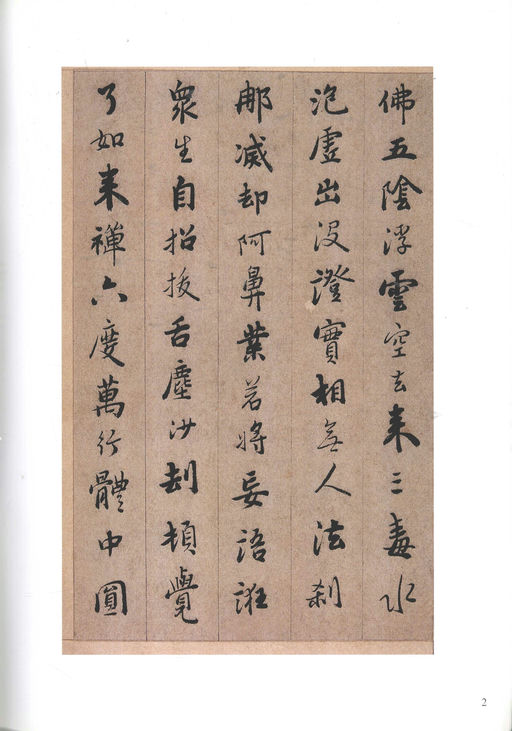 佛五陰浮雲空去来三毒水
泡虛出没證實相無人法刹
那滅却阿鼻業若將妄語誑
衆生自招拔舌塵沙劫頓覺
了如来禪六度萬行體中圓
2